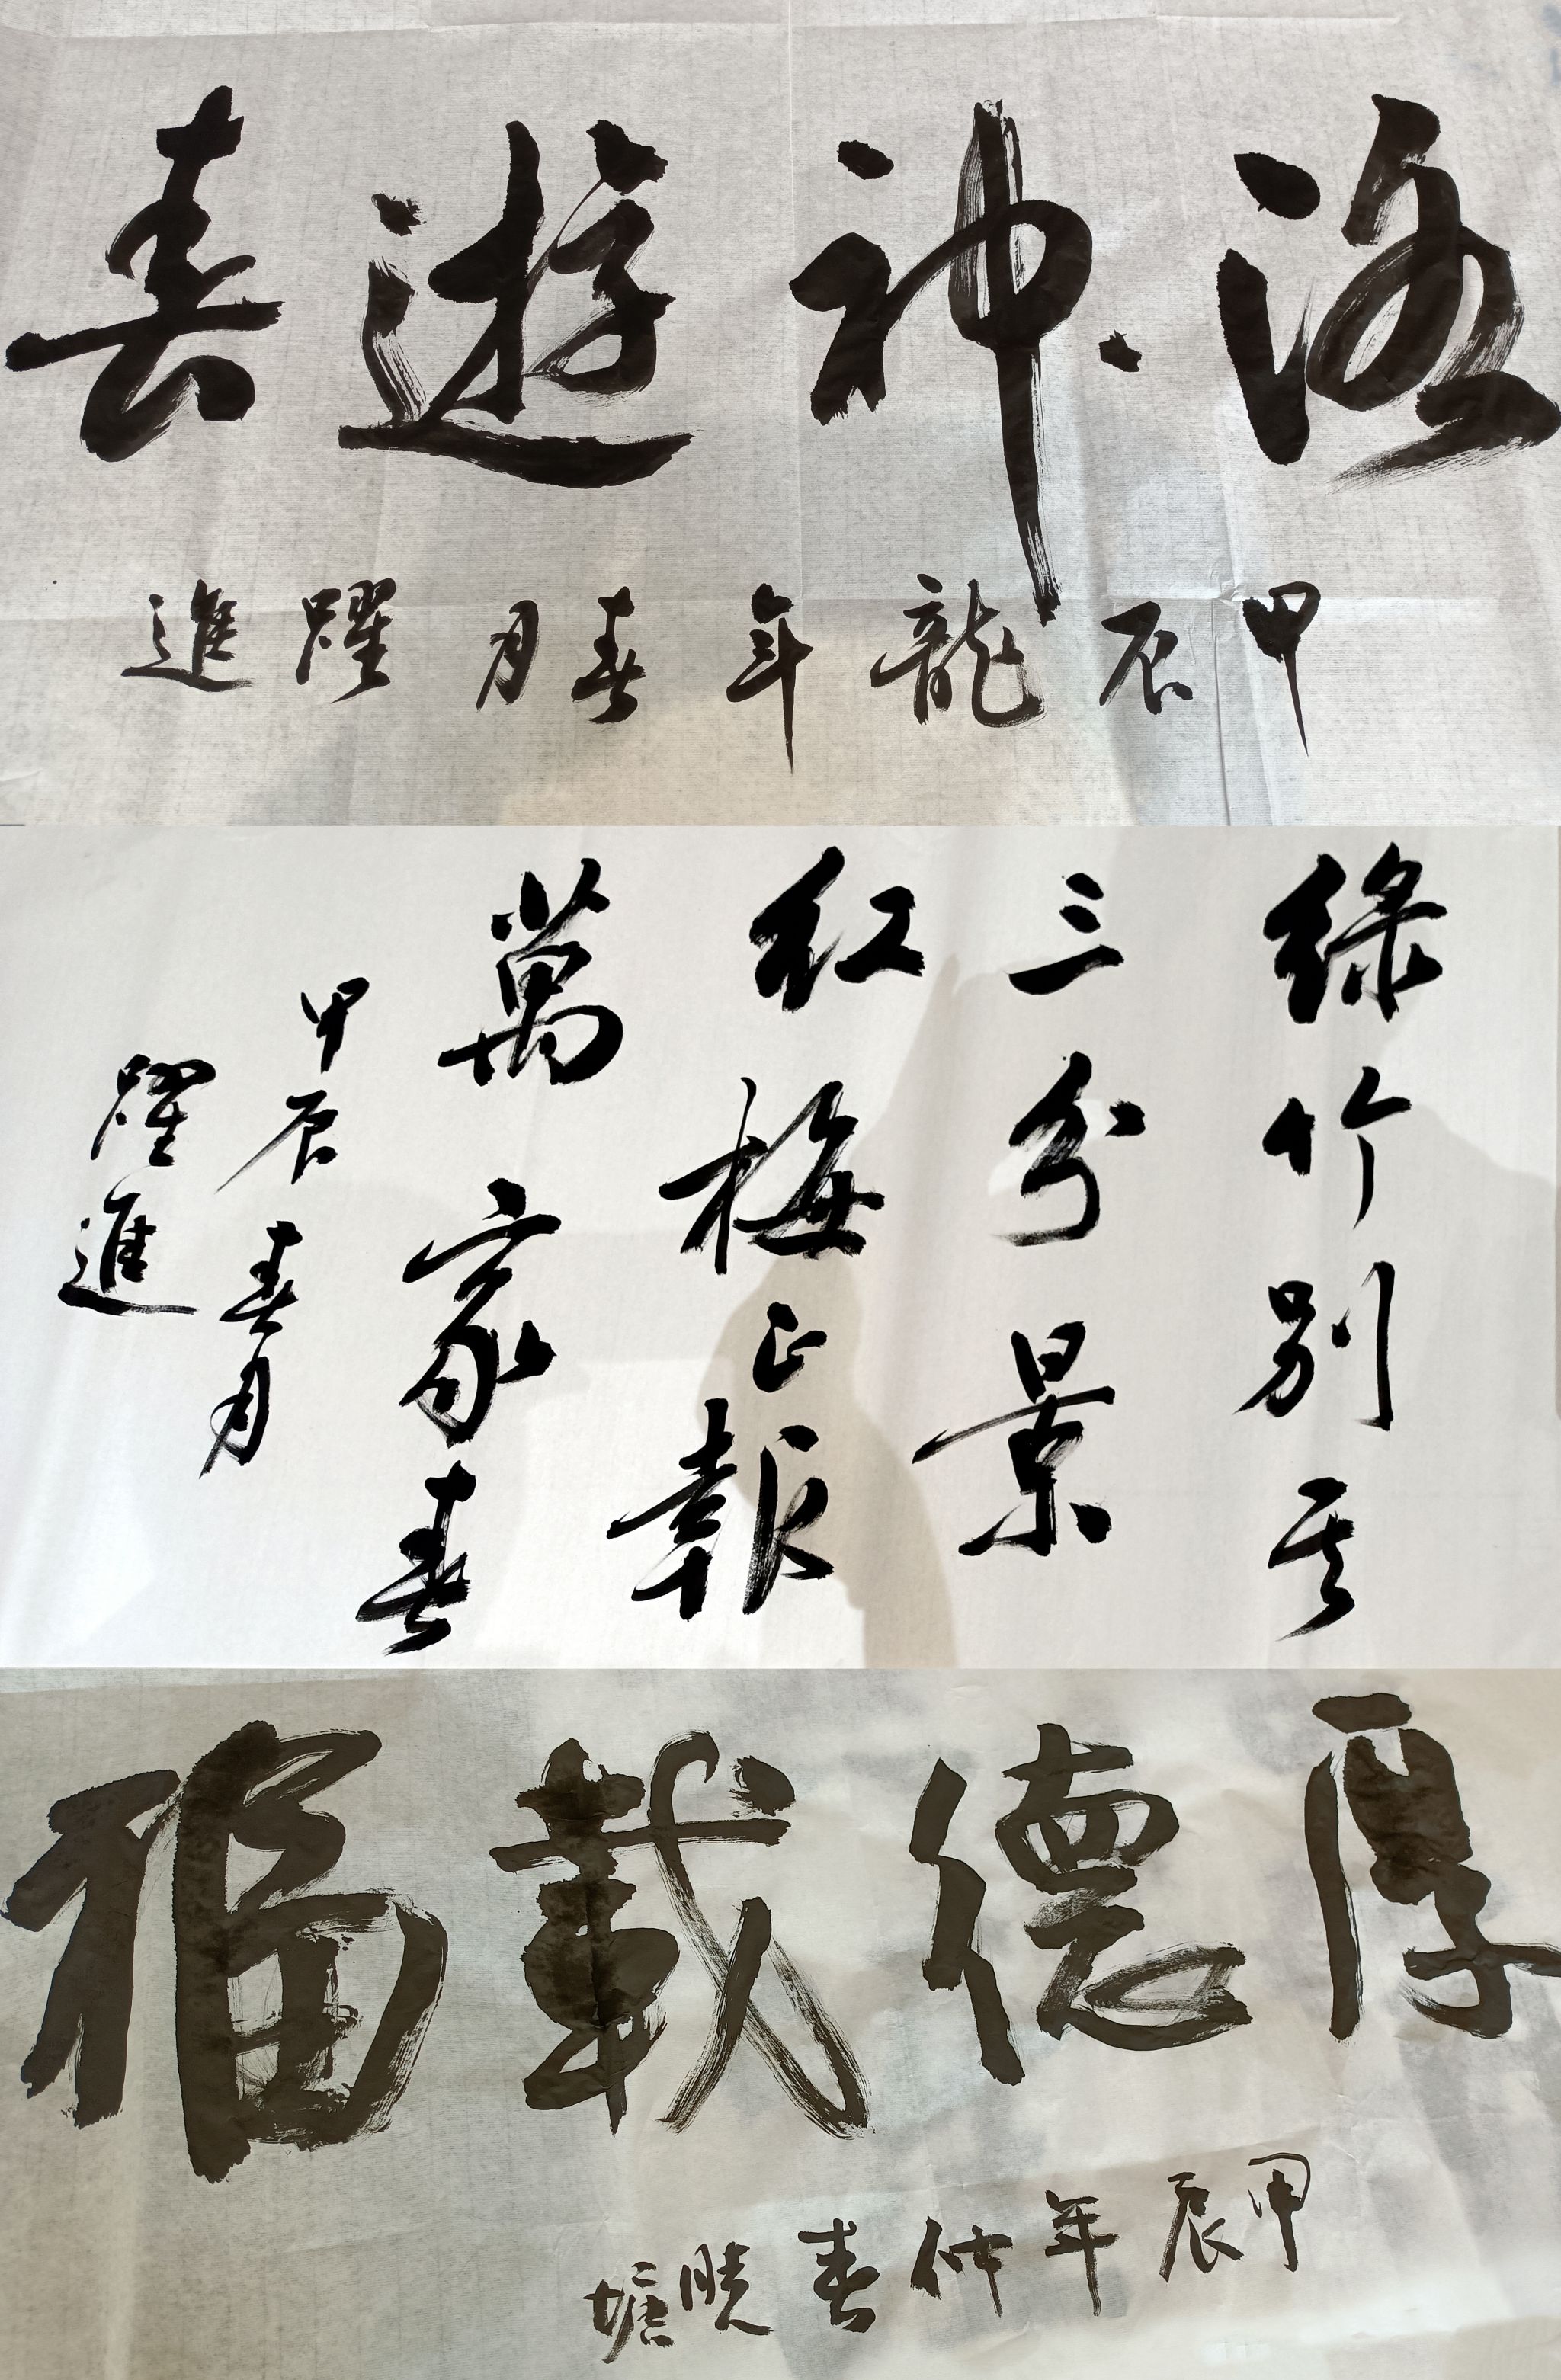 洛神遊春
甲辰龍年春月躍進
綠竹別其
三分景
紅梅正報
萬家春
甲辰春月
躍進
厚德載福
甲辰年仲春曉塘